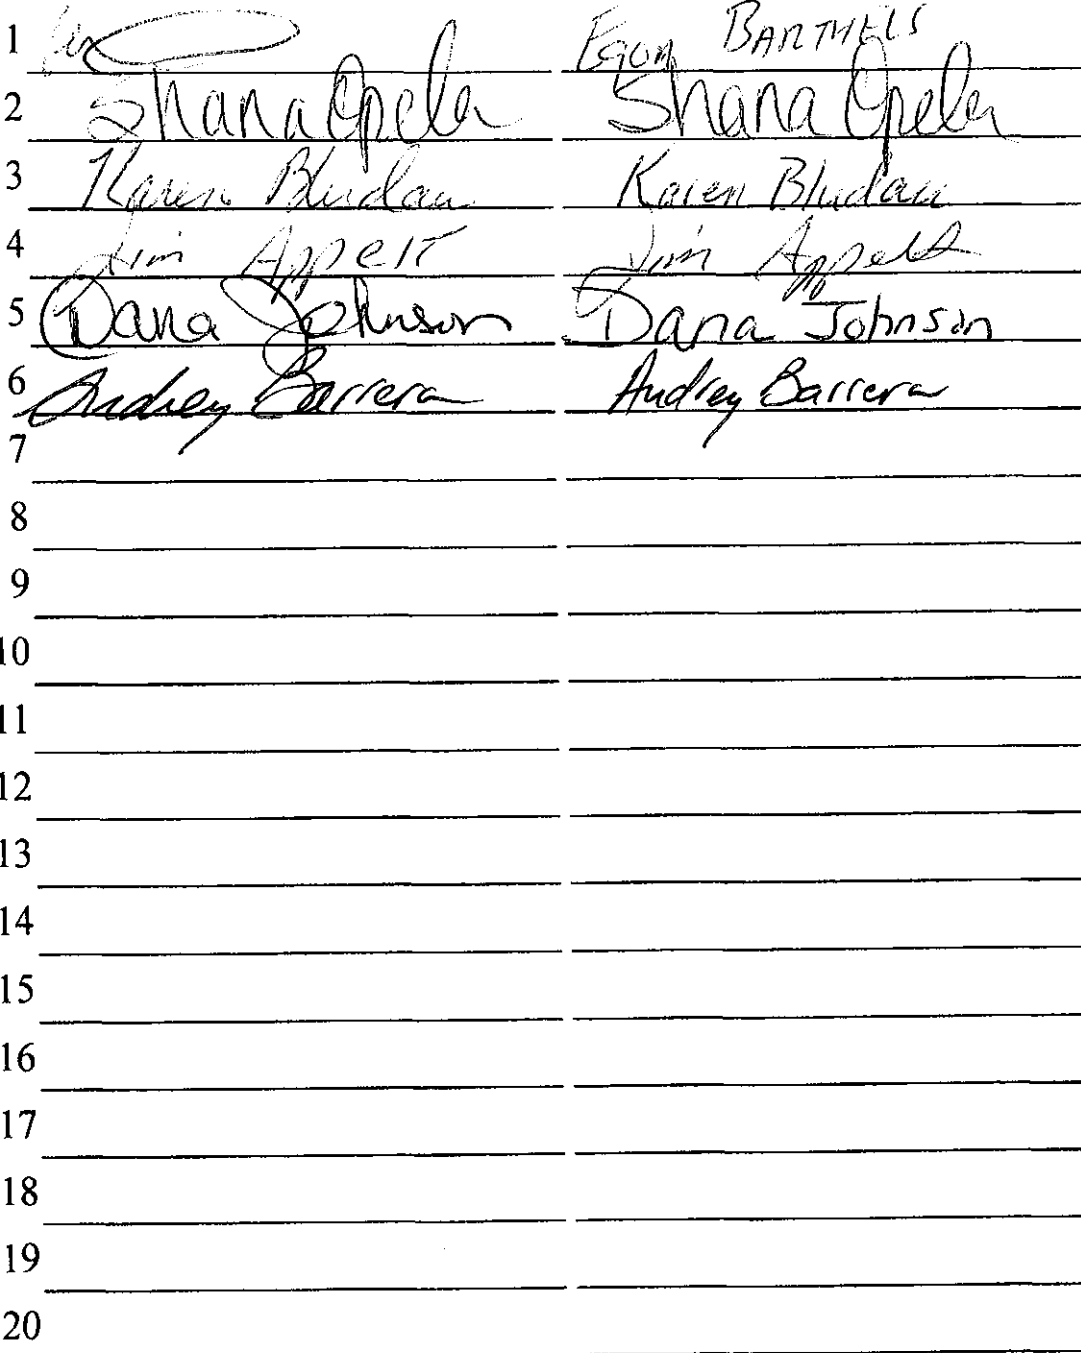 1 Egon BARTHELS
2 Shana Opela Shana Opela
3 Karen Bludau Karen Bludau
4 Jim Appelt Jim Appelt
5 Dana Johnson Dana Johnson
6 Audrey Barrera Audrey Barrera
7
8
9
10
11
12
13
14
15
16
17
18
19
20